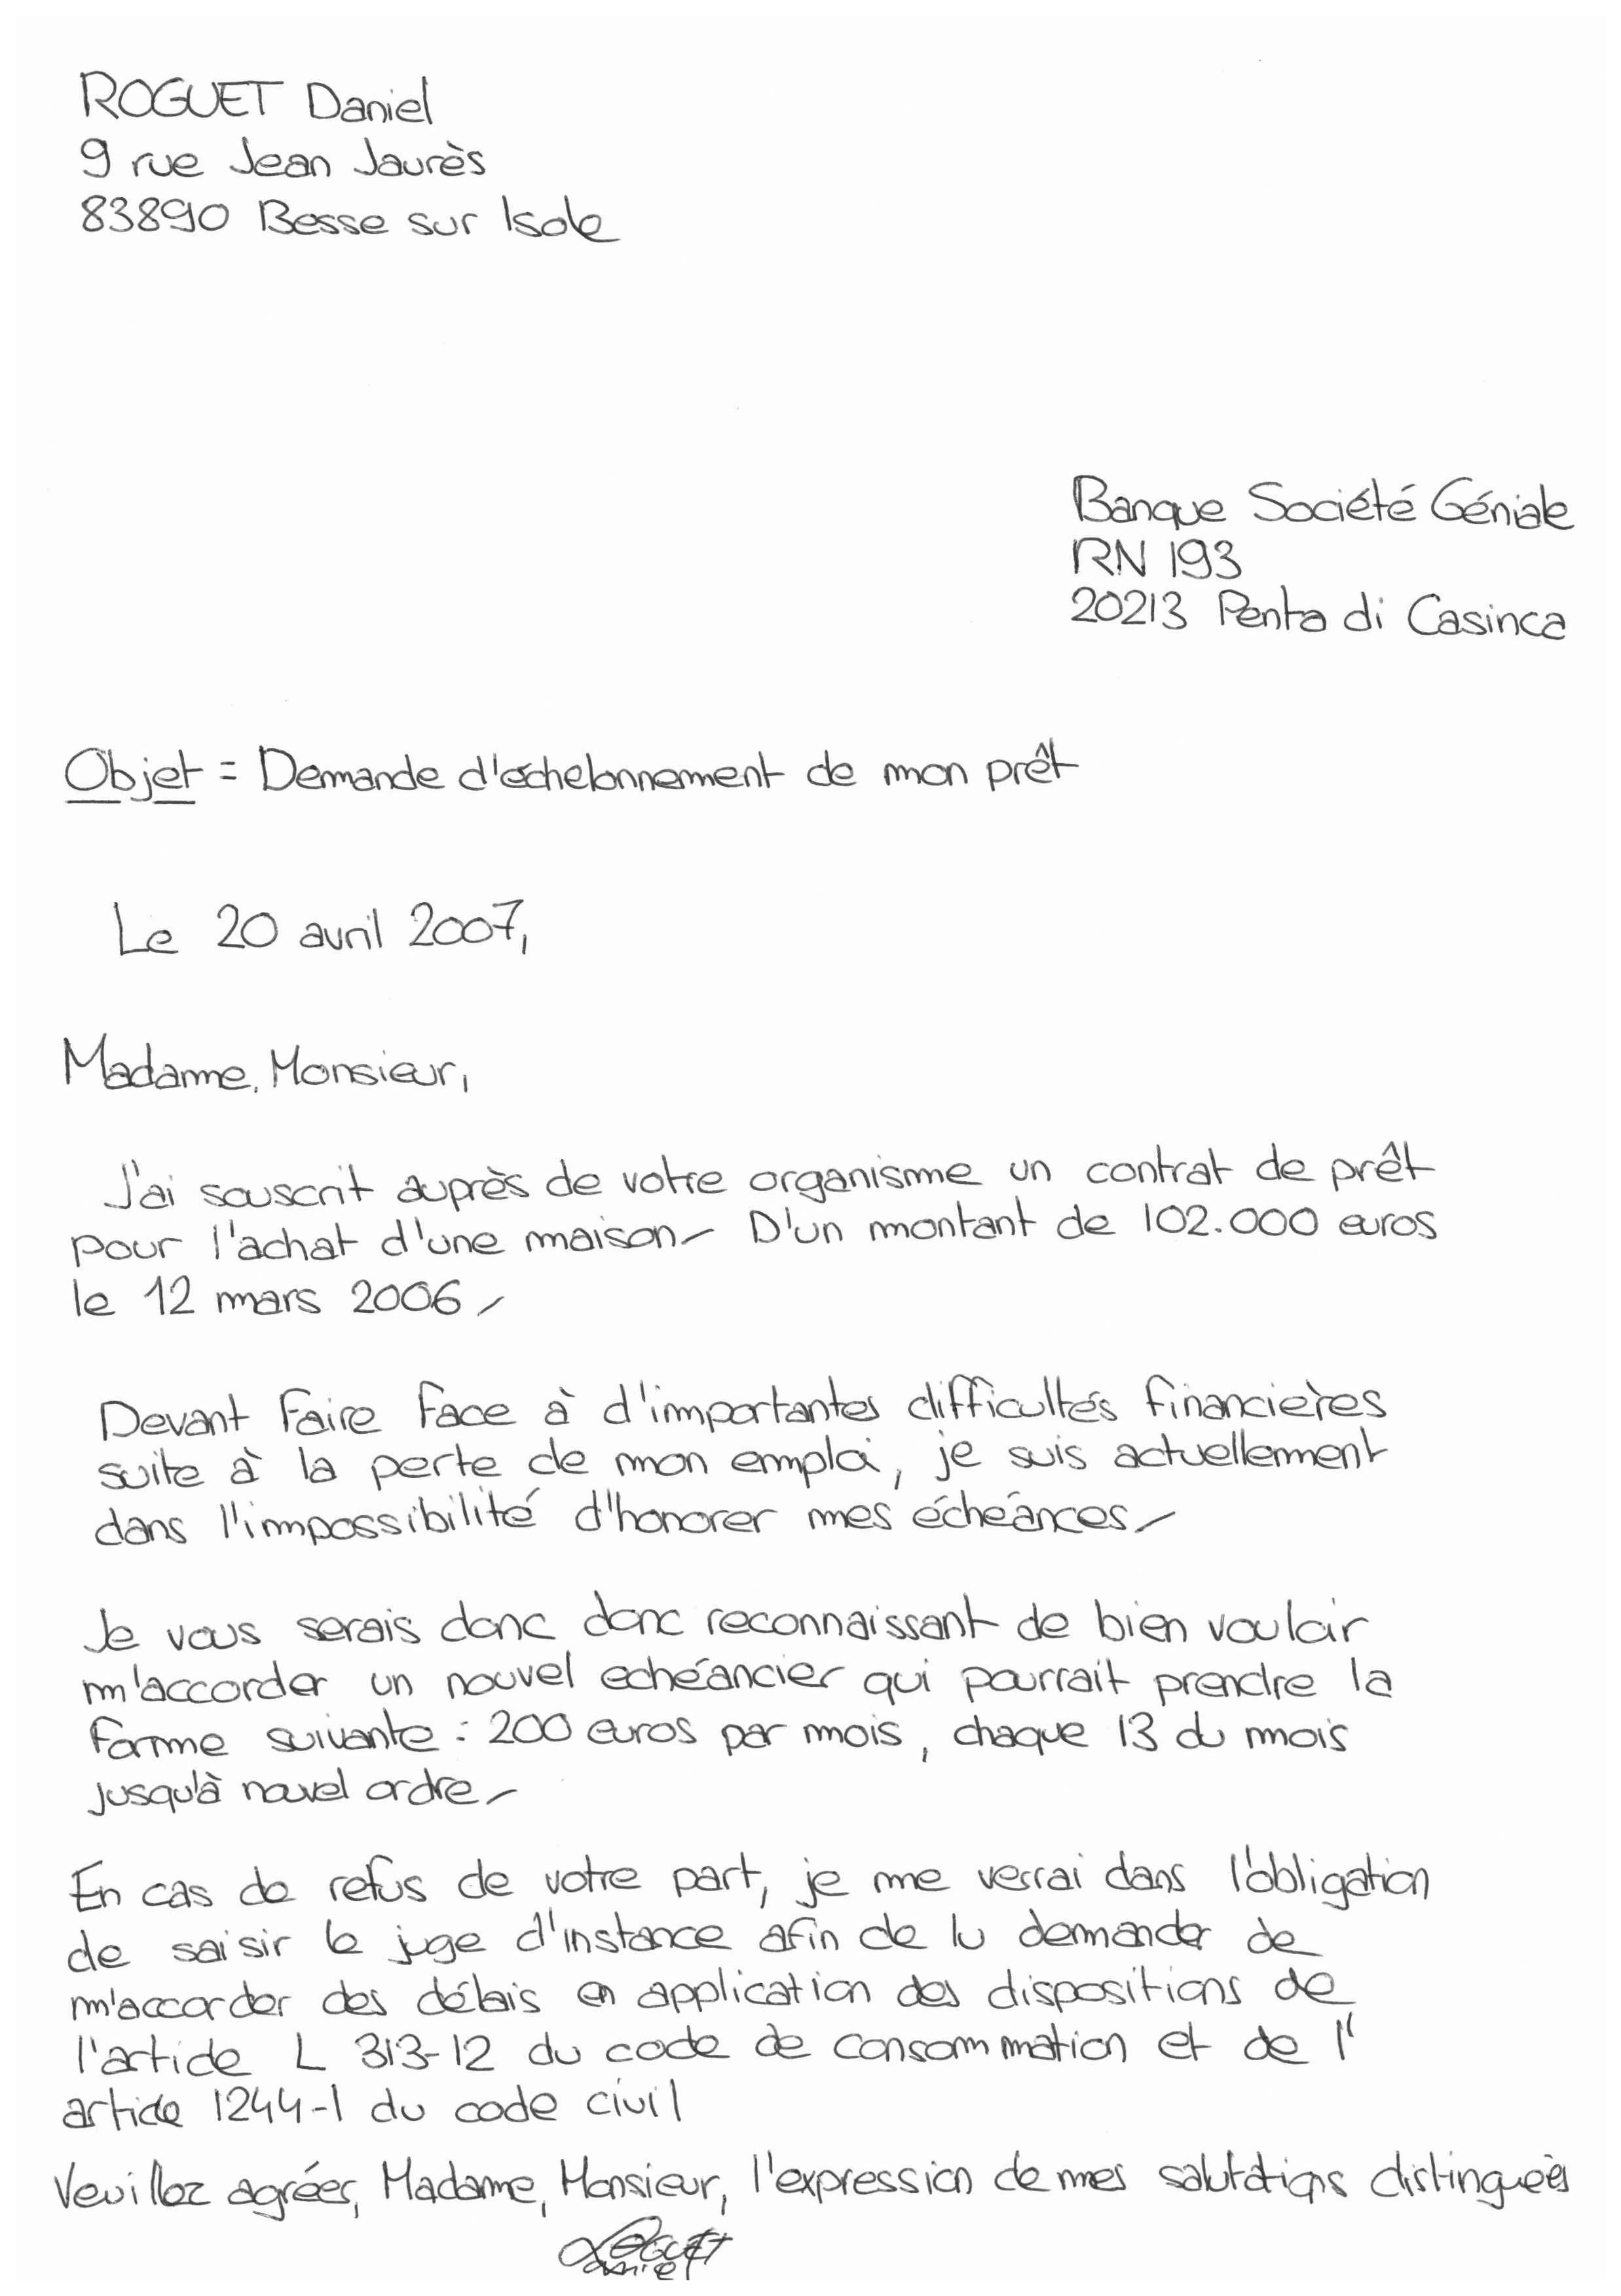 ROGUET Daniel
9 rue Jean Jaurès
83890 Besse sur Isole
Banque Société Géniale
RN 193
20213 Penta di Casinca
Objet = Demande d'échelonnement de mon prêt
Le 20 avril 2007,
Madame, Monsieur,
J'ai souscrit auprès de votre organisme un contrat de prêt
pour l'achat d'une maison - D'un montant de 102.000 euros
le 12 mars 2006 -
Devant faire face à d'importantes difficultés financières
suite à la perte de mon emploi, je suis actuellement
dans l'impossibilité d'honorer mes échéances -
Je vous serais donc donc reconnaissant de bien vouloir
m'accorder un nouvel echéancier qui pourrait prendre la
forme suivante : 200 euros par mois, chaque 13 du mois
jusqu'à nouvel ordre -
En cas de refus de votre part, je me verrai dans l'obligation
de saisir le juge d'instance afin de lu demander de
m'accorder des délais en application des dispositions de
l'article L 313-12 du code de consommation et de l'
article 1244-1 du code civil
Veuillez agréer, Madame, Monsieur, l'expression de mes salutations distinguées
ROGUET
Daniel